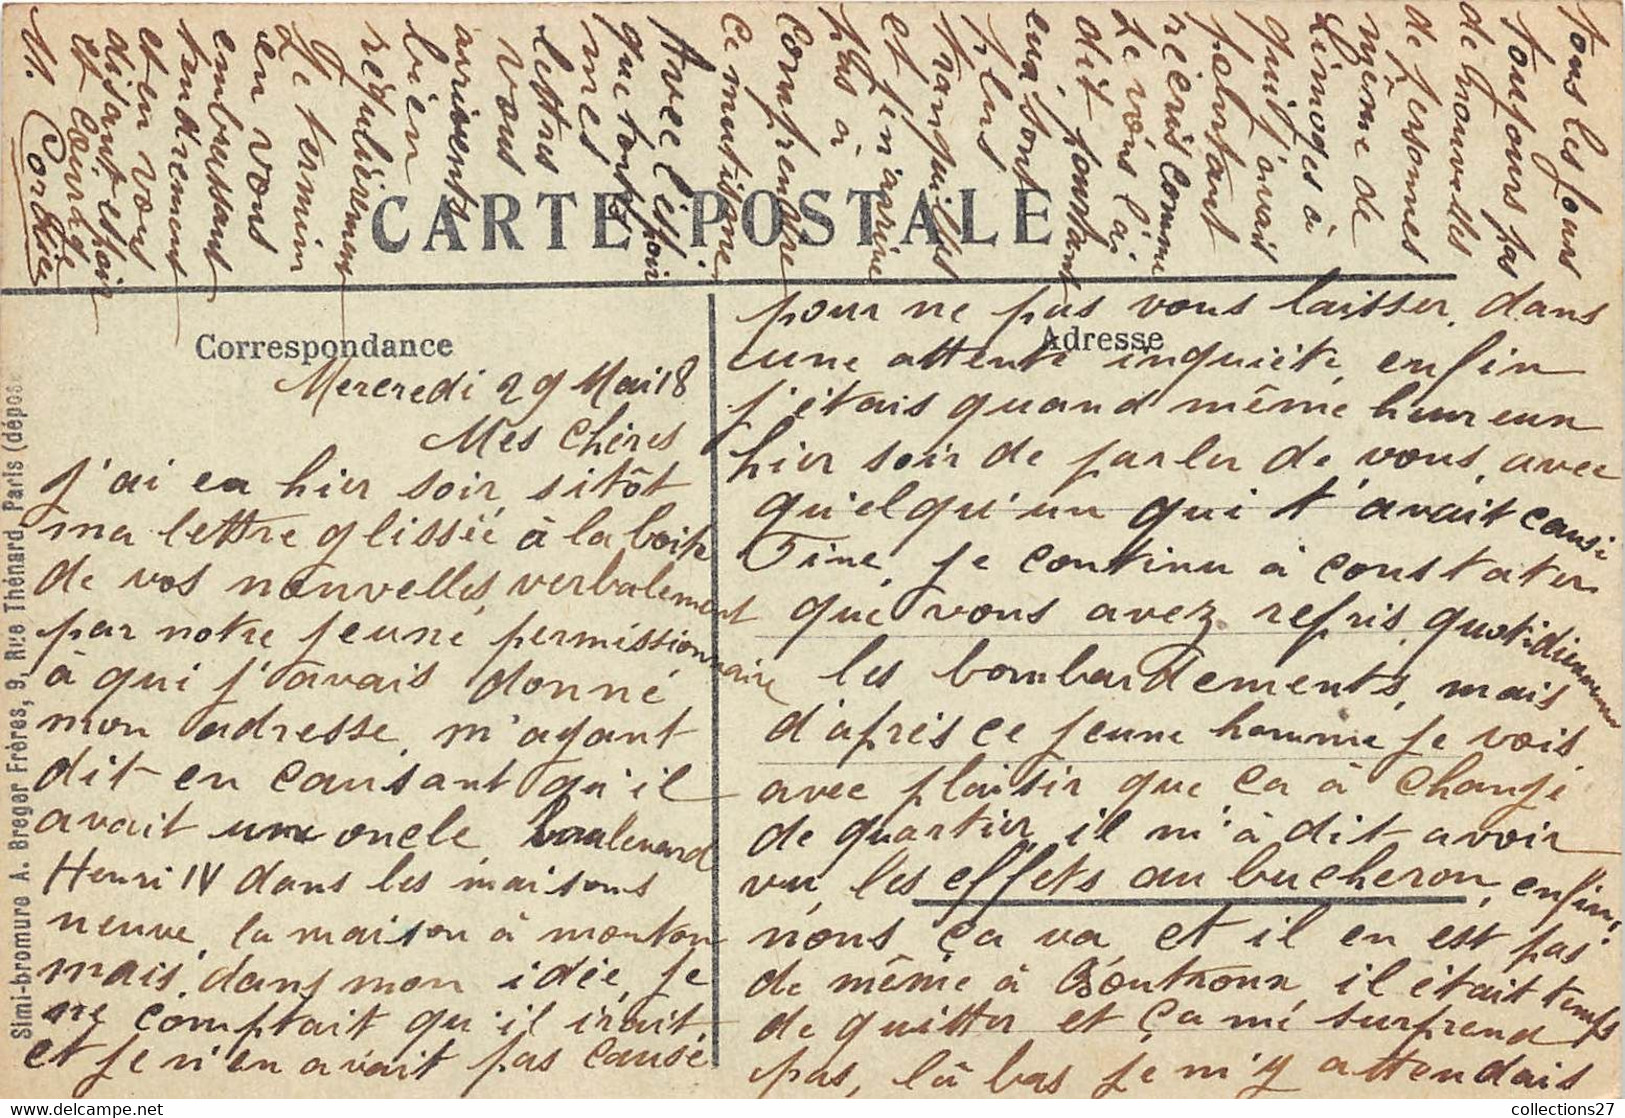 CARTE POSTALE
Correspondance
Adresse
Simi-bromure A. Breger Frères, 9, Rue Thénard, Paris (déposé
Mercredi 29 Mai 18
Mes Chères
J'ai eu hier soir sitôt
ma lettre glissée à la boite
de vos nouvelles, verbalement
par notre jeune permissionnaire
à qui j'avais donné
mon adresse, m'ayant
dit en causant qu'il
avait une oncle, boulevard
Henri IV dans les maisons
neuve, la maison à mouton
mais, dans mon idée, je
ne comptait qu'il irait,
et je n'en avait pas causé
pour ne pas vous laisser, dans
une attente inquiète, enfin
j'étais quand même heureux
hier soir de parler de vous, avec
quelqu'un qui t'avait causé
Tine, je continu à constater
que vous avez repris quotidiennement
les bombardements, mais
d'après ce jeune homme je vois
avec plaisir que ça à changé
de quartier, il m'à dit avoir
vu, les effets au bucheron, enfin,
nous ça va et il en est pas
de même à Soutroux, il était temps
de quitter et ça me surprend
pas, là bas je m'y attendais
Tous les jours
toujours pas
de nouvelles
de personnes
même de
Limoges à
qui j'avais
pourtant
récris comme
je vous l'ai
dit, pourtant
eux sont
plus
tranquilles
et j'en arrive
plus à
comprendre
ce mutisme
Avec l'éspoir
que tout
mes
lettres
vous
arrivent
bien
régulièrement
Je termine
en vous
embrassant
tendrement
et en vous
disant espoir
et courage
M. Cordier
collections27